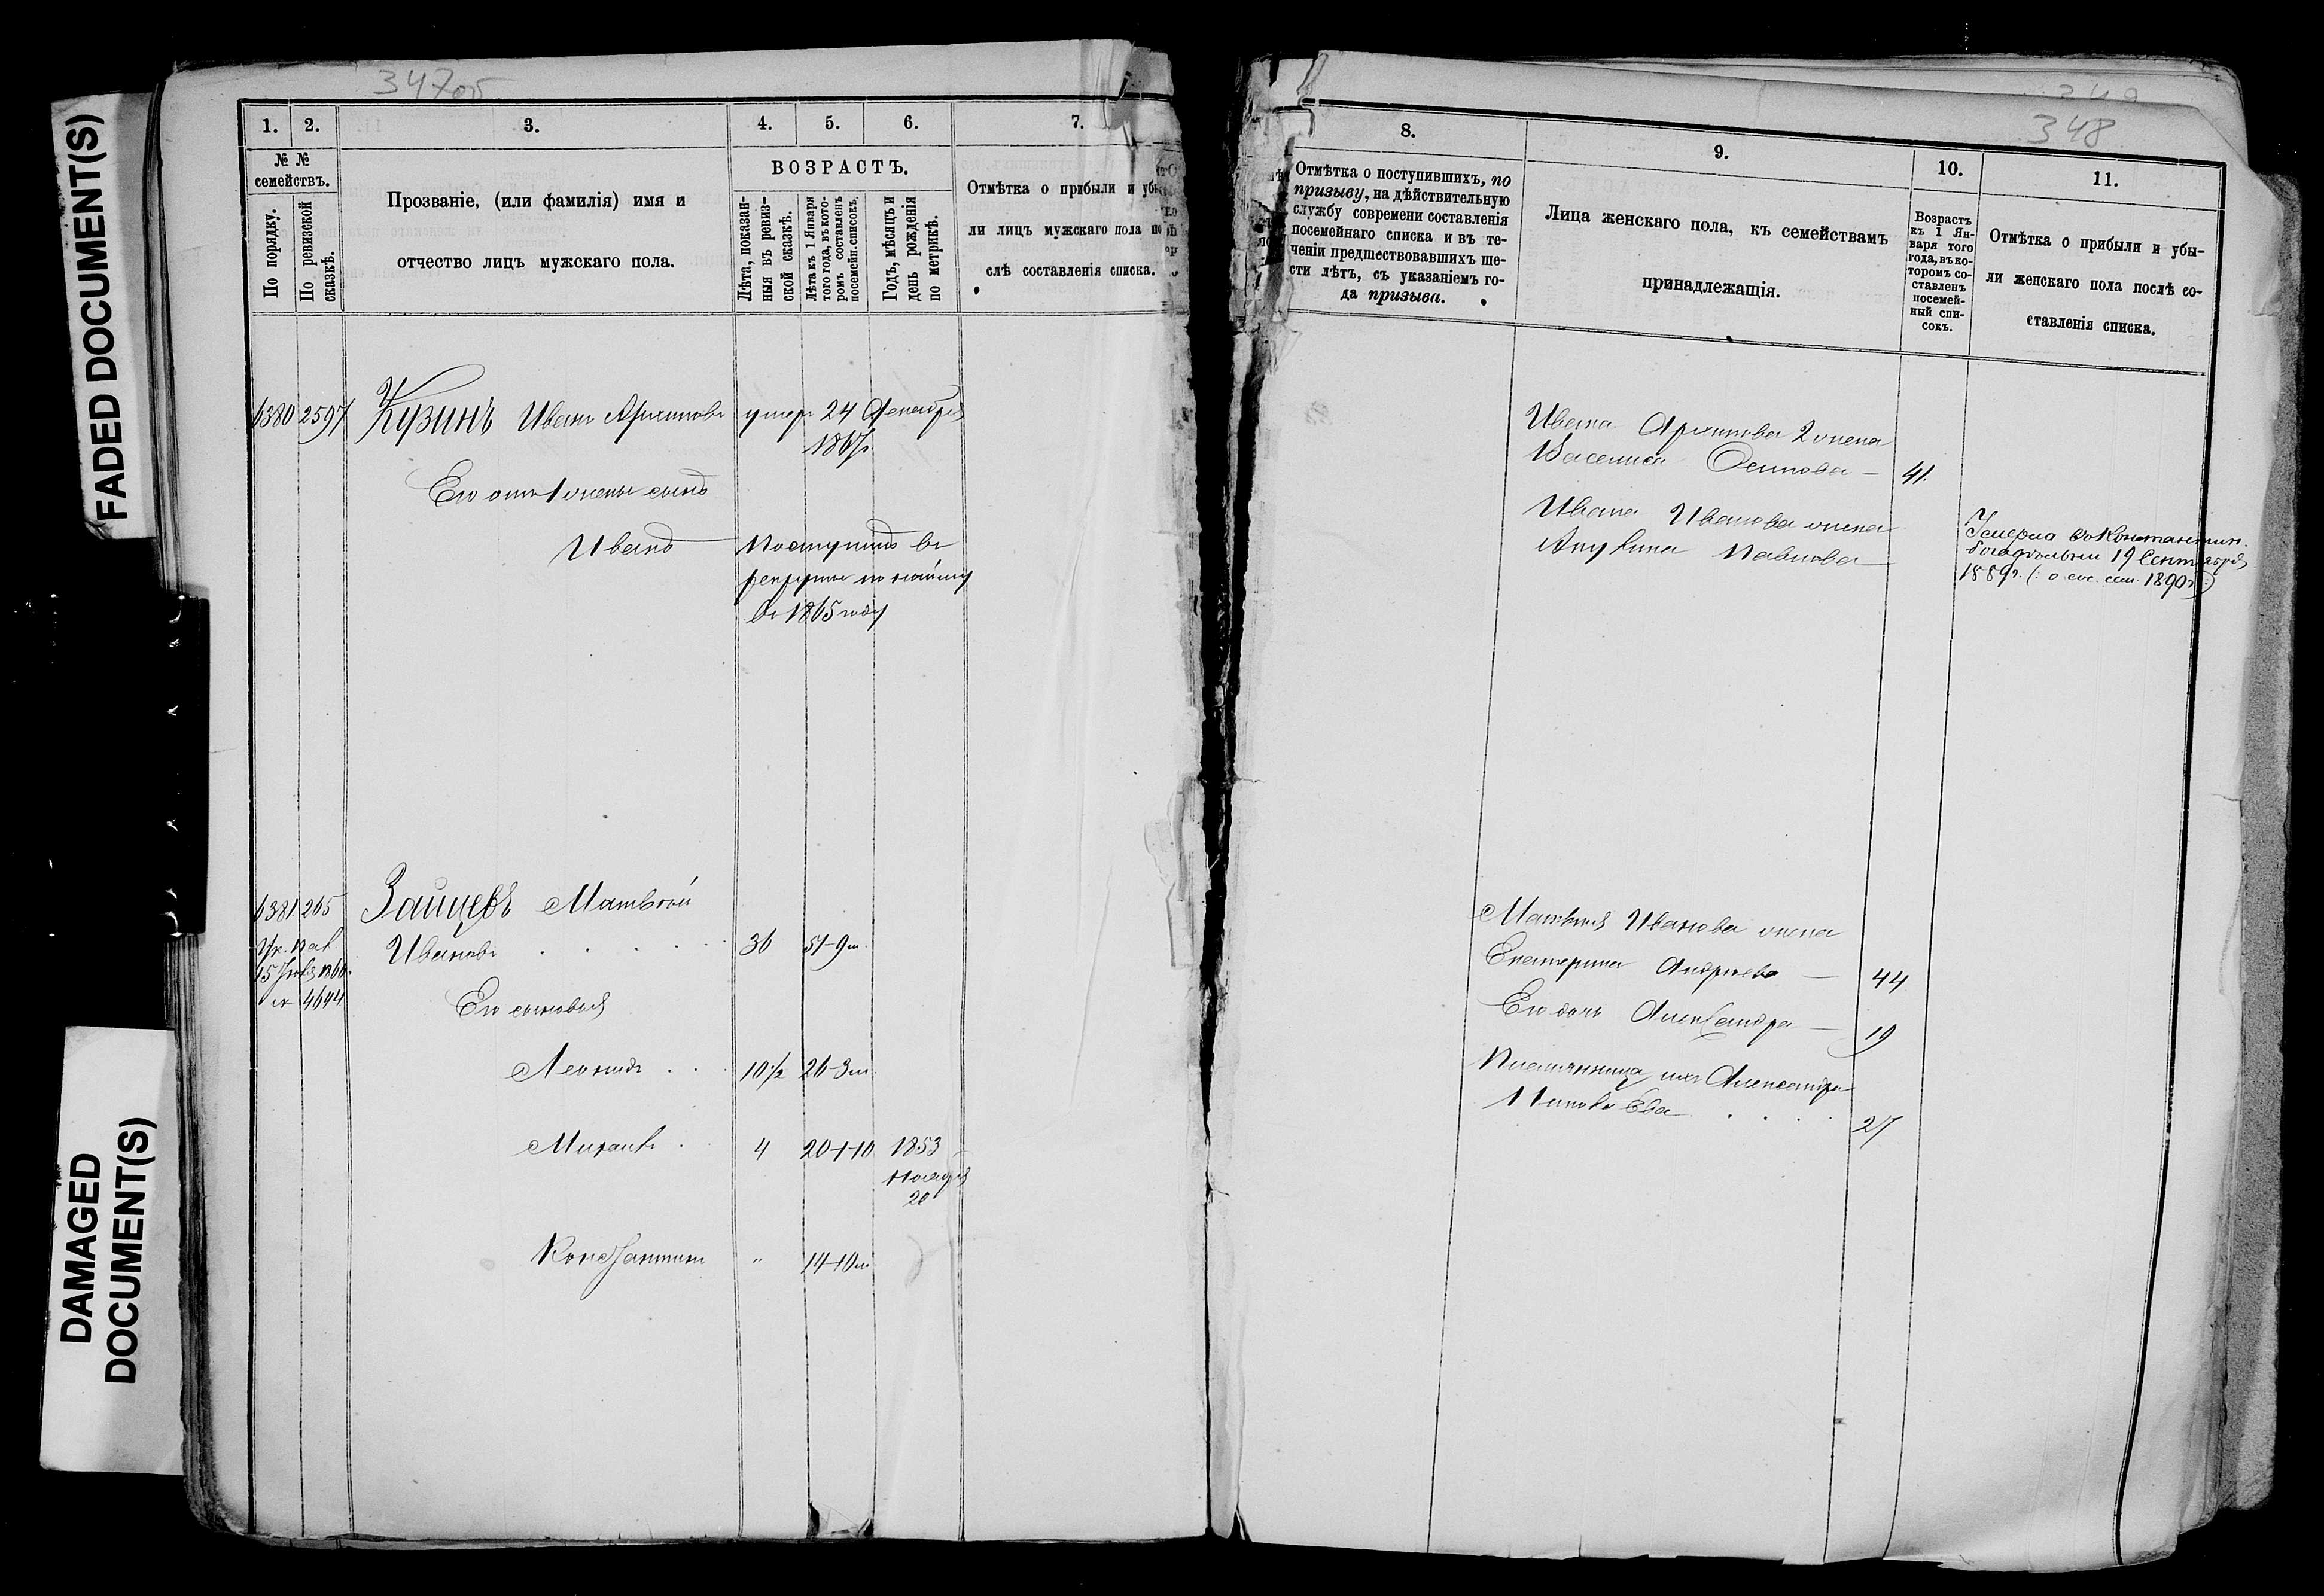 FADED DOCUMENT(S)
DAMAGED
DOCUMENT(S)
347об
1. 2. 3. 4. 5. 6. 7.
№ №
семействъ.
По порядку.
По ревизской
сказкѣ.
Прозваніе, (или фамилія) имя и
отчество лицъ мужскаго пола.
ВОЗРАСТЪ.
Лѣта, показан-
ныя въ ревиз-
ской сказкѣ.
Лѣта къ 1 Января
того года, въ кото-
ромъ составленъ
посемейн. списокъ.
Годъ, мѣсяцъ и
день рожденія
по метрикѣ.
Отмѣтка о прибыли и убы
ли лицъ мужскаго пола по
слѣ составленія списка.
6380 2597 Кузинъ Иванъ Архиповъ умеръ 24 Декабря
1867г.
Его отъ 1 жены сынъ
Иванъ Поступилъ въ
рекруты по найму
въ 1865 году
6381 265 Зайцевъ Матвѣй
Ивановъ 36 51-9м.
15 1866.
№ 4644
Его сыновья
Леонидъ 10½ 26-3м
Михаилъ 4 20-1-10 1853
Ноября
20
Константинъ " 14-10м
348
8. 9. 10. 11.
Отмѣтка о поступившихъ, по
призыву, на дѣйствительную
службу современи составленія
посемейнаго списка и въ те-
ченіи предшествовавшихъ ше-
сти лѣтъ, съ указаніемъ го-
да призыва.
Лица женскаго пола, къ семействамъ
принадлежащія.
Возрастъ
къ 1 Ян-
варя того
года, въ ко-
торомъ со-
ставленъ
посемей-
ный спи-
сокъ.
Отмѣтка о прибыли и убы-
ли женскаго пола послѣ со-
ставленія списка.
Ивана Архипова 2 жена
Василиса Осипова 41.
Ивана Иванова жена
Акулина Павлова
Умерла въ Константин.
богадѣльни 19 Сентября
1889г. (: о сос. сем. 1890г:)
Матвѣя Иванова жена
Екатерина Андреева 44
Его дочь Александра 19
Племянница ихъ Александра
27